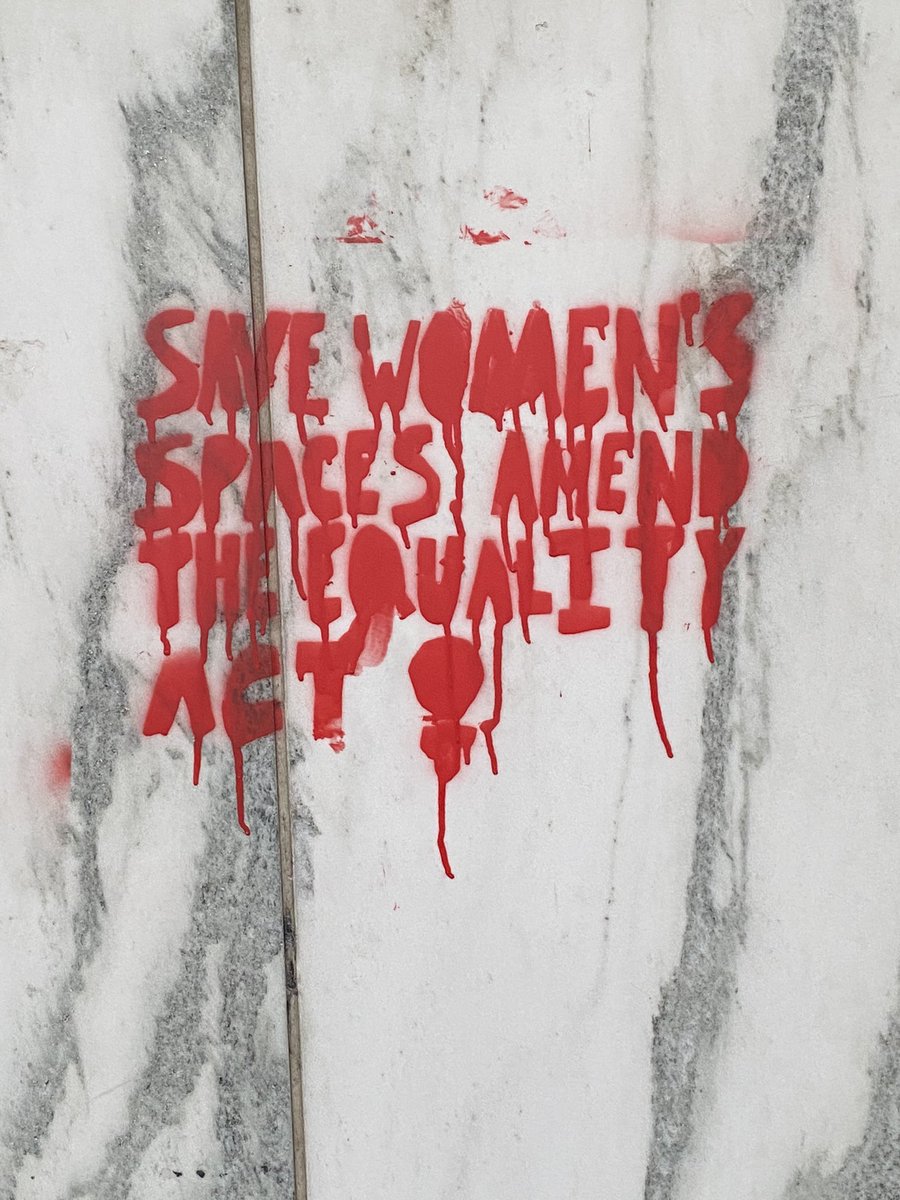 SAVE WOMEN'S
SPACES AMEND
THE EQUALITY
ACT